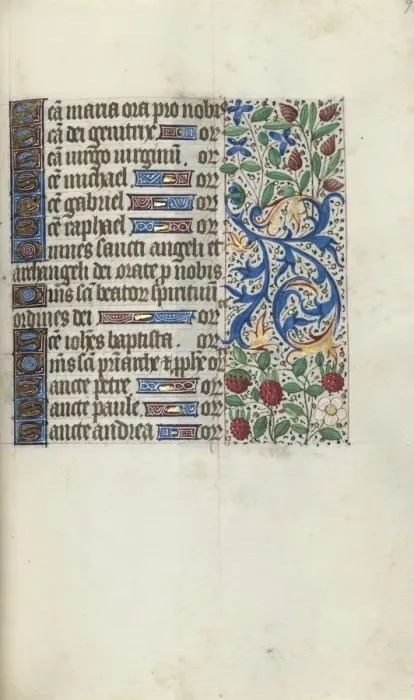 Sca maria ora pro nobis
Sca dei genitrix or
Sca uirgo uirginu. or
Sce michael or
Sce gabriel or
Sce raphael or
Omnes sancti angeli et
archangeli dei orate p nobis
Oms sci beator spirituu
ordines dei or
Sce iohes baptista. or
Oms sci priarche et pphe or
Sancte petre or
Sancte paule or
Sancte andrea or